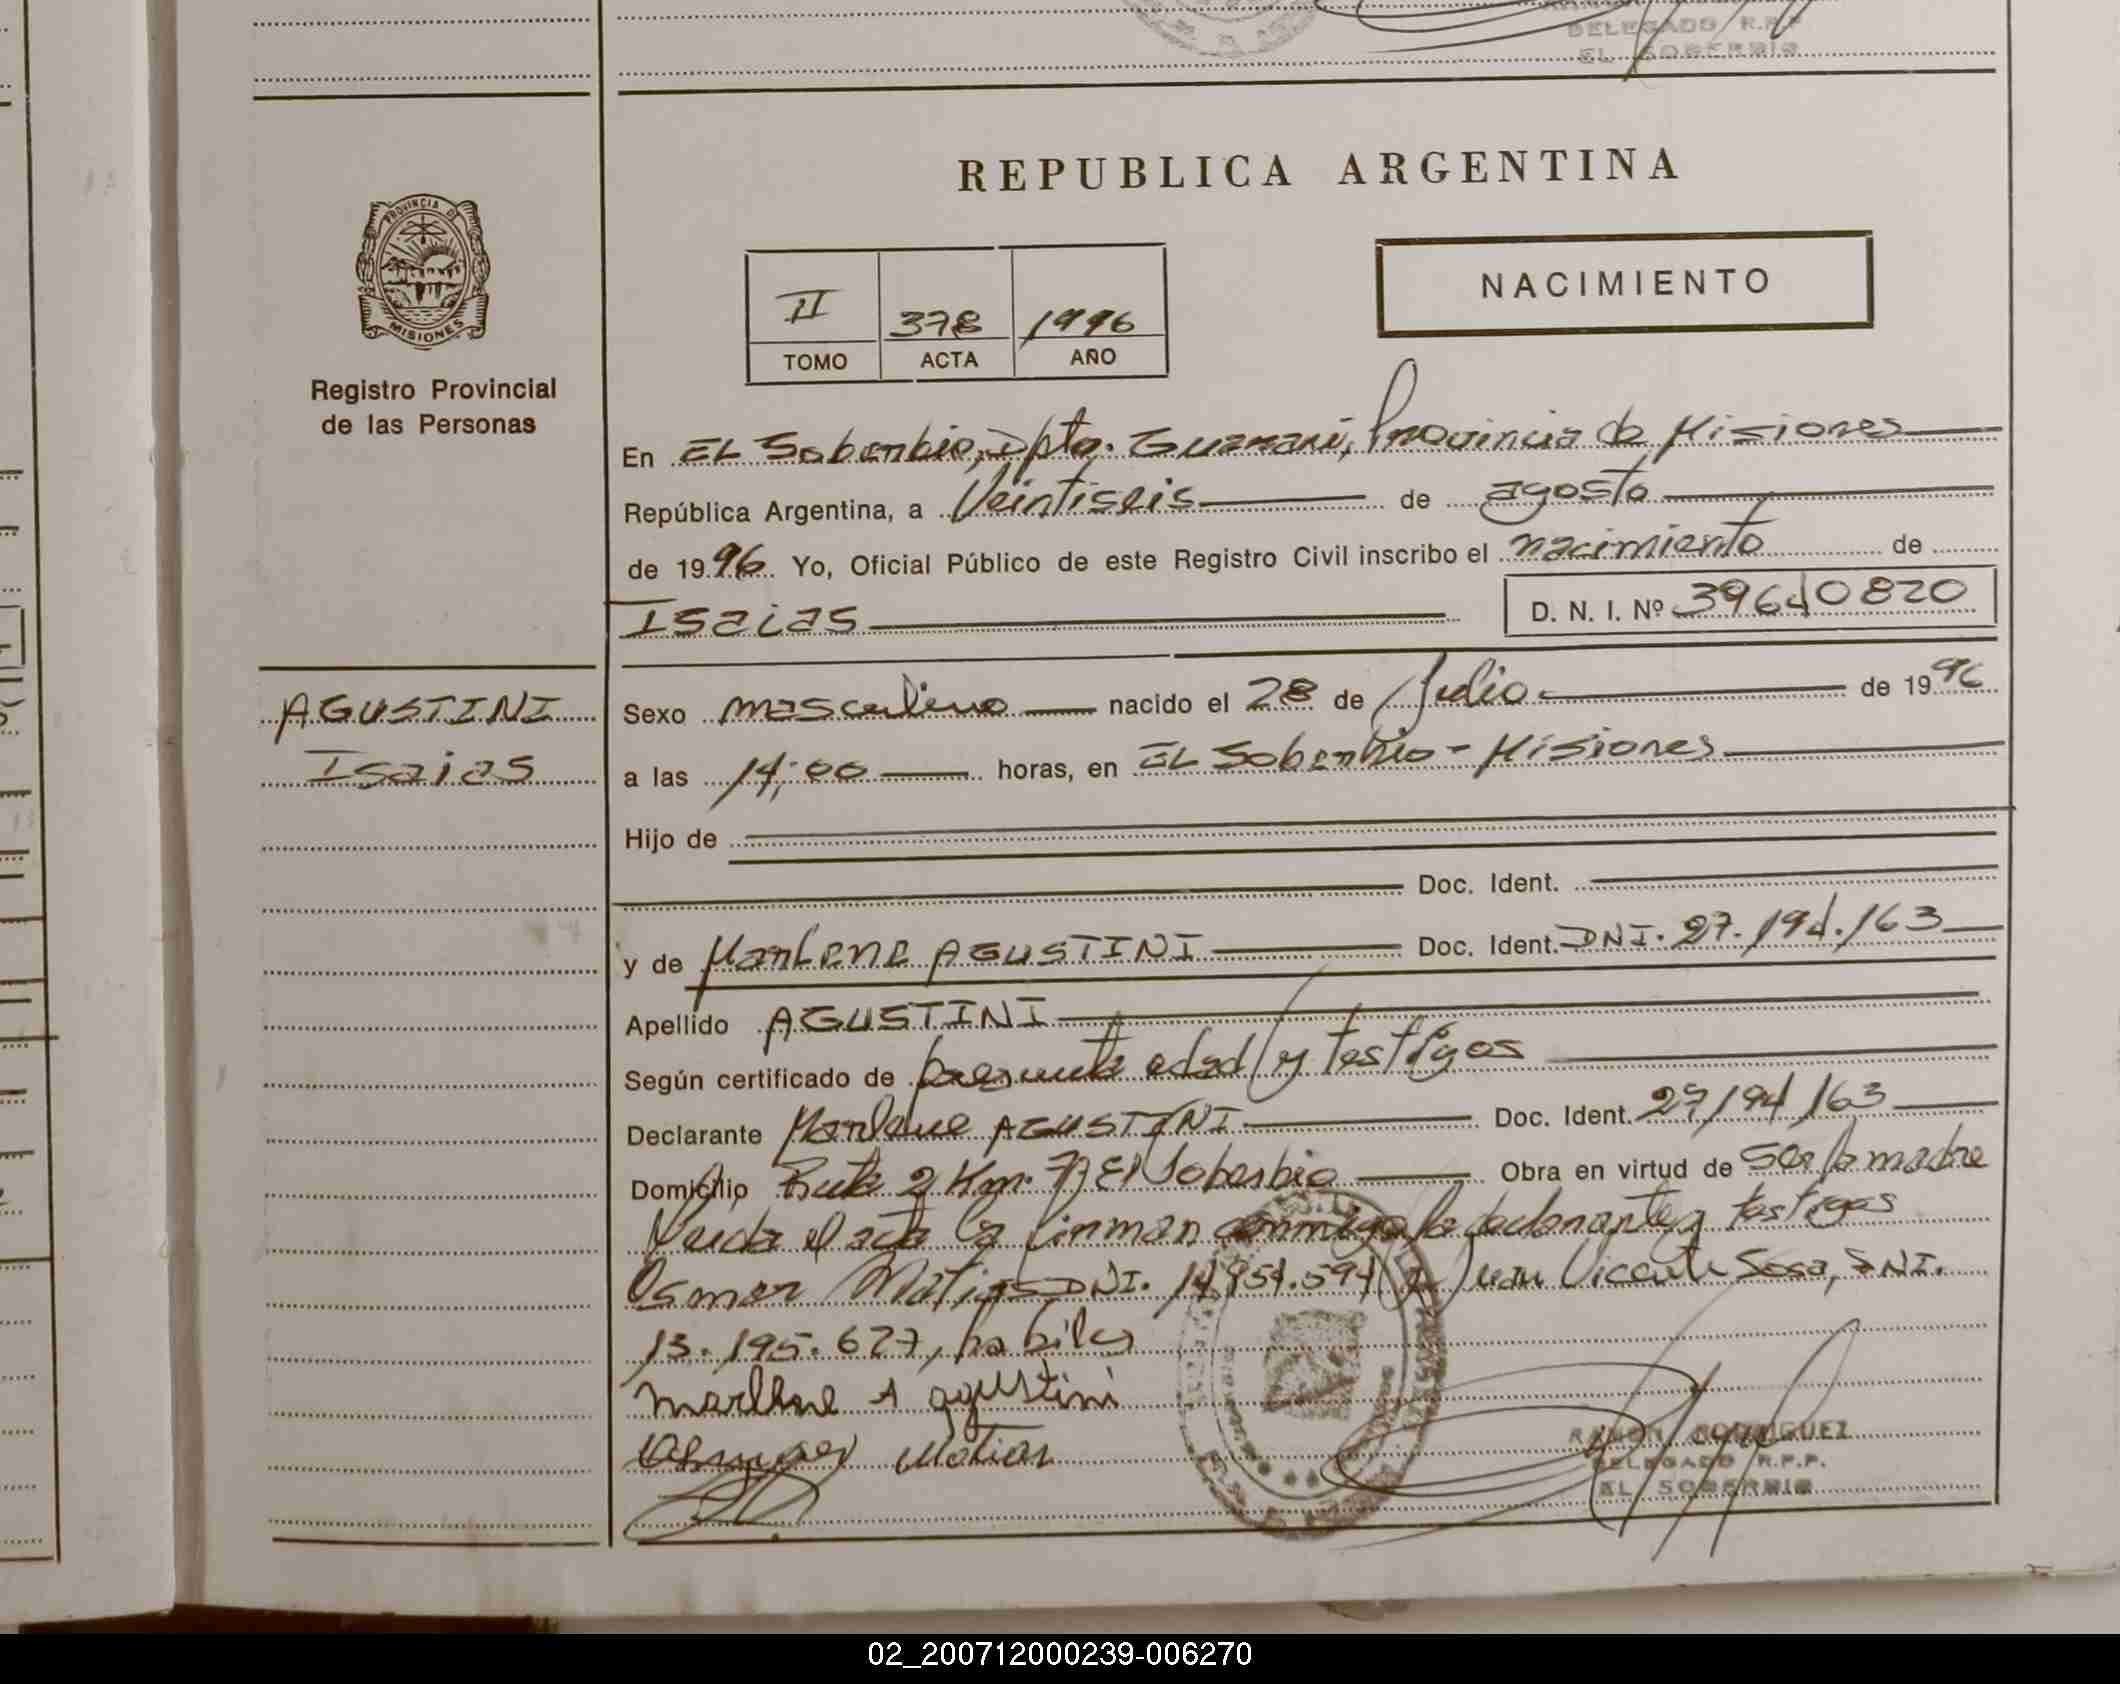 DELEGADO R.P.P.
EL SOBERBIO
REPUBLICA ARGENTINA
PROVINCIA DE
MISIONES
NACIMIENTO
II 378 1996
TOMO ACTA AÑO
Registro Provincial
de las Personas
En EL Soberbio, Dpto. Guarani, Provincia de Misiones
República Argentina, a Veintiseis de agosto
de 1996 Yo, Oficial Público de este Registro Civil inscribo el nacimiento de
Isaias D. N. I. Nº 39640820
AGUSTINI
Isaias
Sexo masculino nacido el 28 de Julio de 1996
a las 14:00 horas, en EL Soberbio - Misiones
Hijo de
Doc. Ident.
y de Marlene AGUSTINI Doc. Ident. DNI. 27.194.163
Apellido AGUSTINI
Según certificado de presunta edad y testigos
Declarante Marlene AGUSTINI Doc. Ident. 27/194/163
Domicilio Ruta 2 Km. 71 El Soberbio Obra en virtud de ser la madre
Leida el acta la firman conmigo la declarante y testigos
Osmar Matias DNI. 14.954.594 y Juan Vicente Sosa, DNI.
13.195.627, habiles
marlene A agustini
Osmar Matias
RAMON RODRIGUEZ
DELEGADO R.P.P.
EL SOBERBIO
02_200712000239-006270